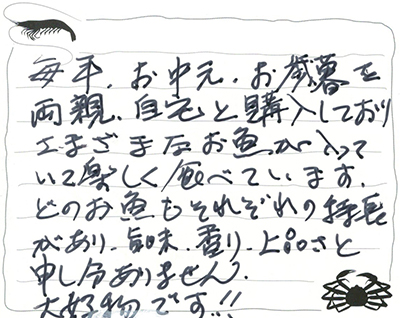 毎年、お中元、お歳暮を
両親、自宅と購入しており
さまざまなお魚が入って
いて楽しく食べています。
どのお魚もそれぞれの特長
があり、旨味、香り、上品さと
申し分ありません。
大好物です!!